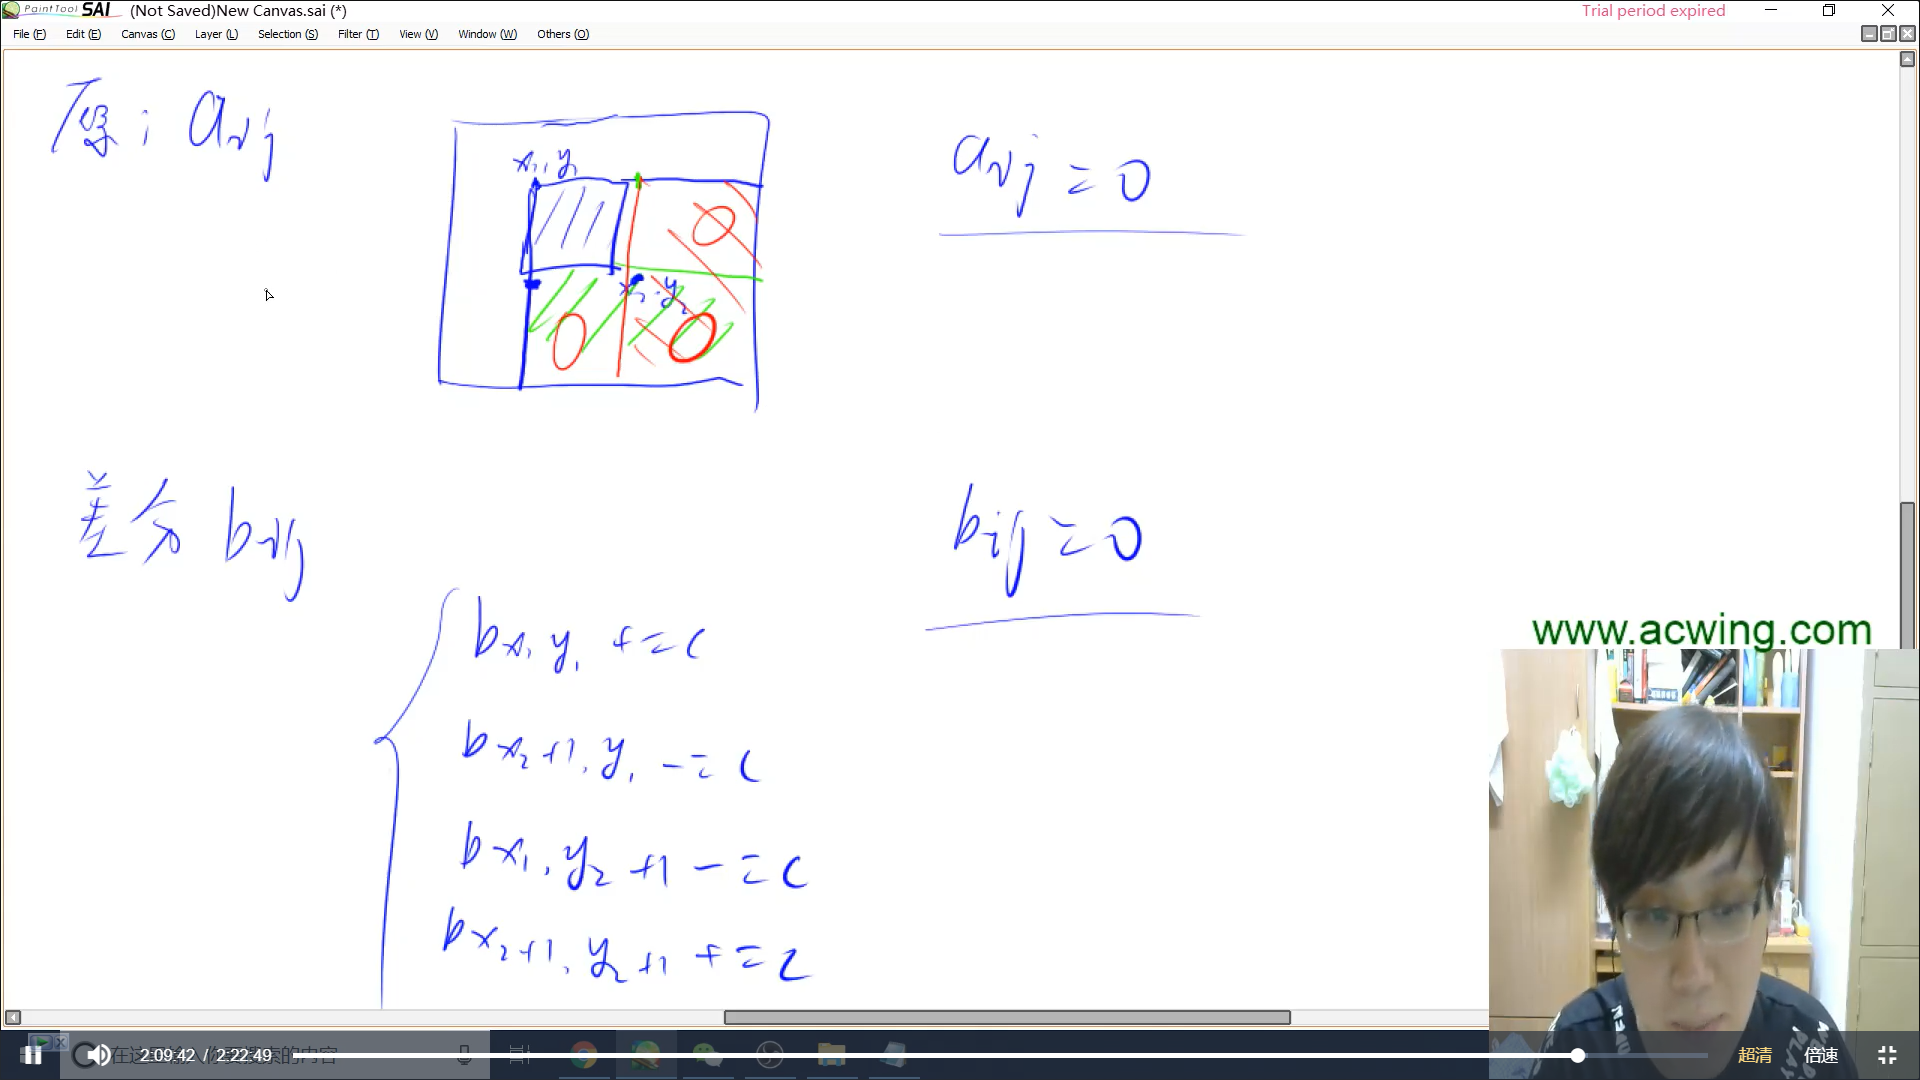 PaintTool SAI (Not Saved)New Canvas.sai (*) Trial period expired
File (F) Edit (E) Canvas (C) Layer (L) Selection (S) Filter (T) View (V) Window (W) Others (O)
原: aij
x1, y1
x2, y2
0
0
0
aij = 0
差分 bij
bij = 0
bx1,y1 += c
bx2+1,y1 -= c
bx1,y2+1 -= c
bx2+1,y2+1 += c
www.acwing.com
在这里输入你要搜索的内容
2:09:42 / 2:22:49 超清 倍速